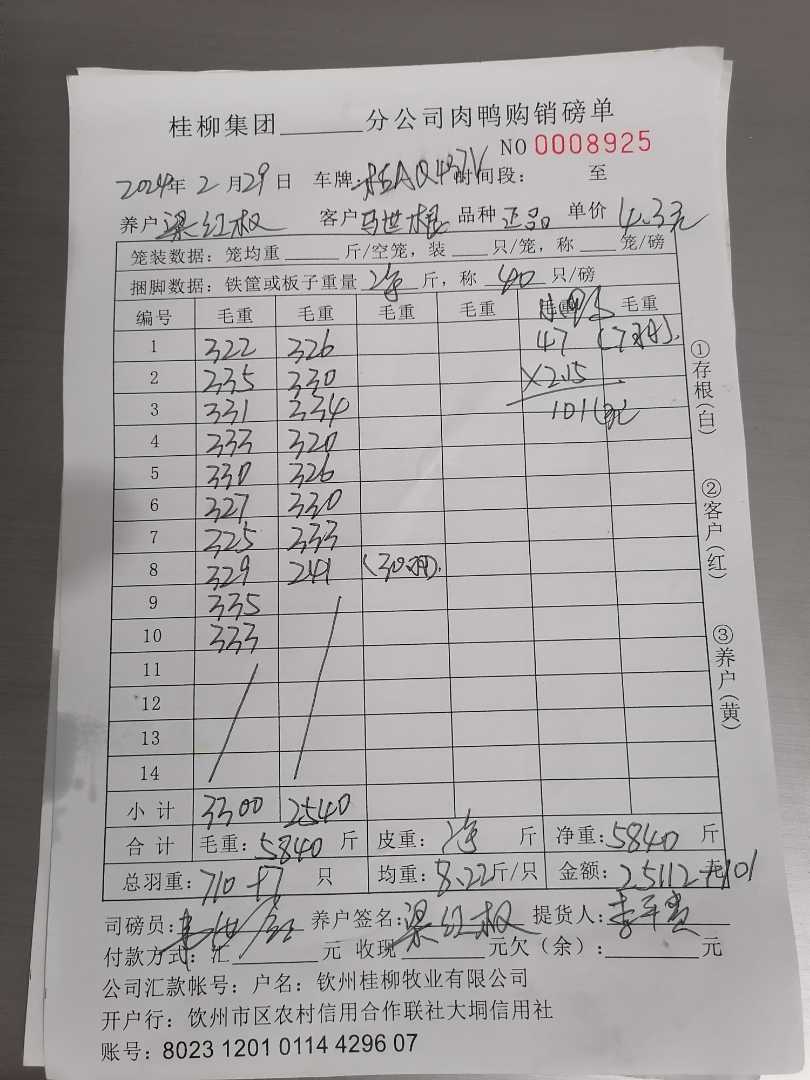 桂柳集团______分公司肉鸭购销磅单
NO 0008925
2024年 2 月 29 日 车牌: 时间段: 至
养户 梁红权 客户 马世根 品种 正品 单价 4.3元
笼装数据: 笼均重 ____ 斤/空笼, 装 ___ 只/笼, 称 ____ 笼/磅
捆脚数据: 铁筐或板子重量 净 斤, 称 40 只/磅
编号 毛重 毛重 毛重 毛重 毛重 毛重
1 322 326 47 (7只).
2 335 330 ×2.15
3 331 334 101元
4 333 320
5 330 326
6 327 330
7 325 333
8 329 241 (30只).
9 335
10 333
11
12
13
14
小计 3300 2540
合计 毛重: 5840 斤 皮重: 净 斤 净重: 5840 斤
总羽重: 710+7 只 均重: 8.22斤/只 金额: 25112+101 元
司磅员: 养户签名: 梁红权 提货人:
付款方式: 汇______元 收现______元欠(余):______元
公司汇款帐号: 户名: 钦州桂柳牧业有限公司
开户行: 钦州市区农村信用合作联社大垌信用社
账号: 8023 1201 0114 4296 07
①存根(白)
②客户(红)
③养户(黄)